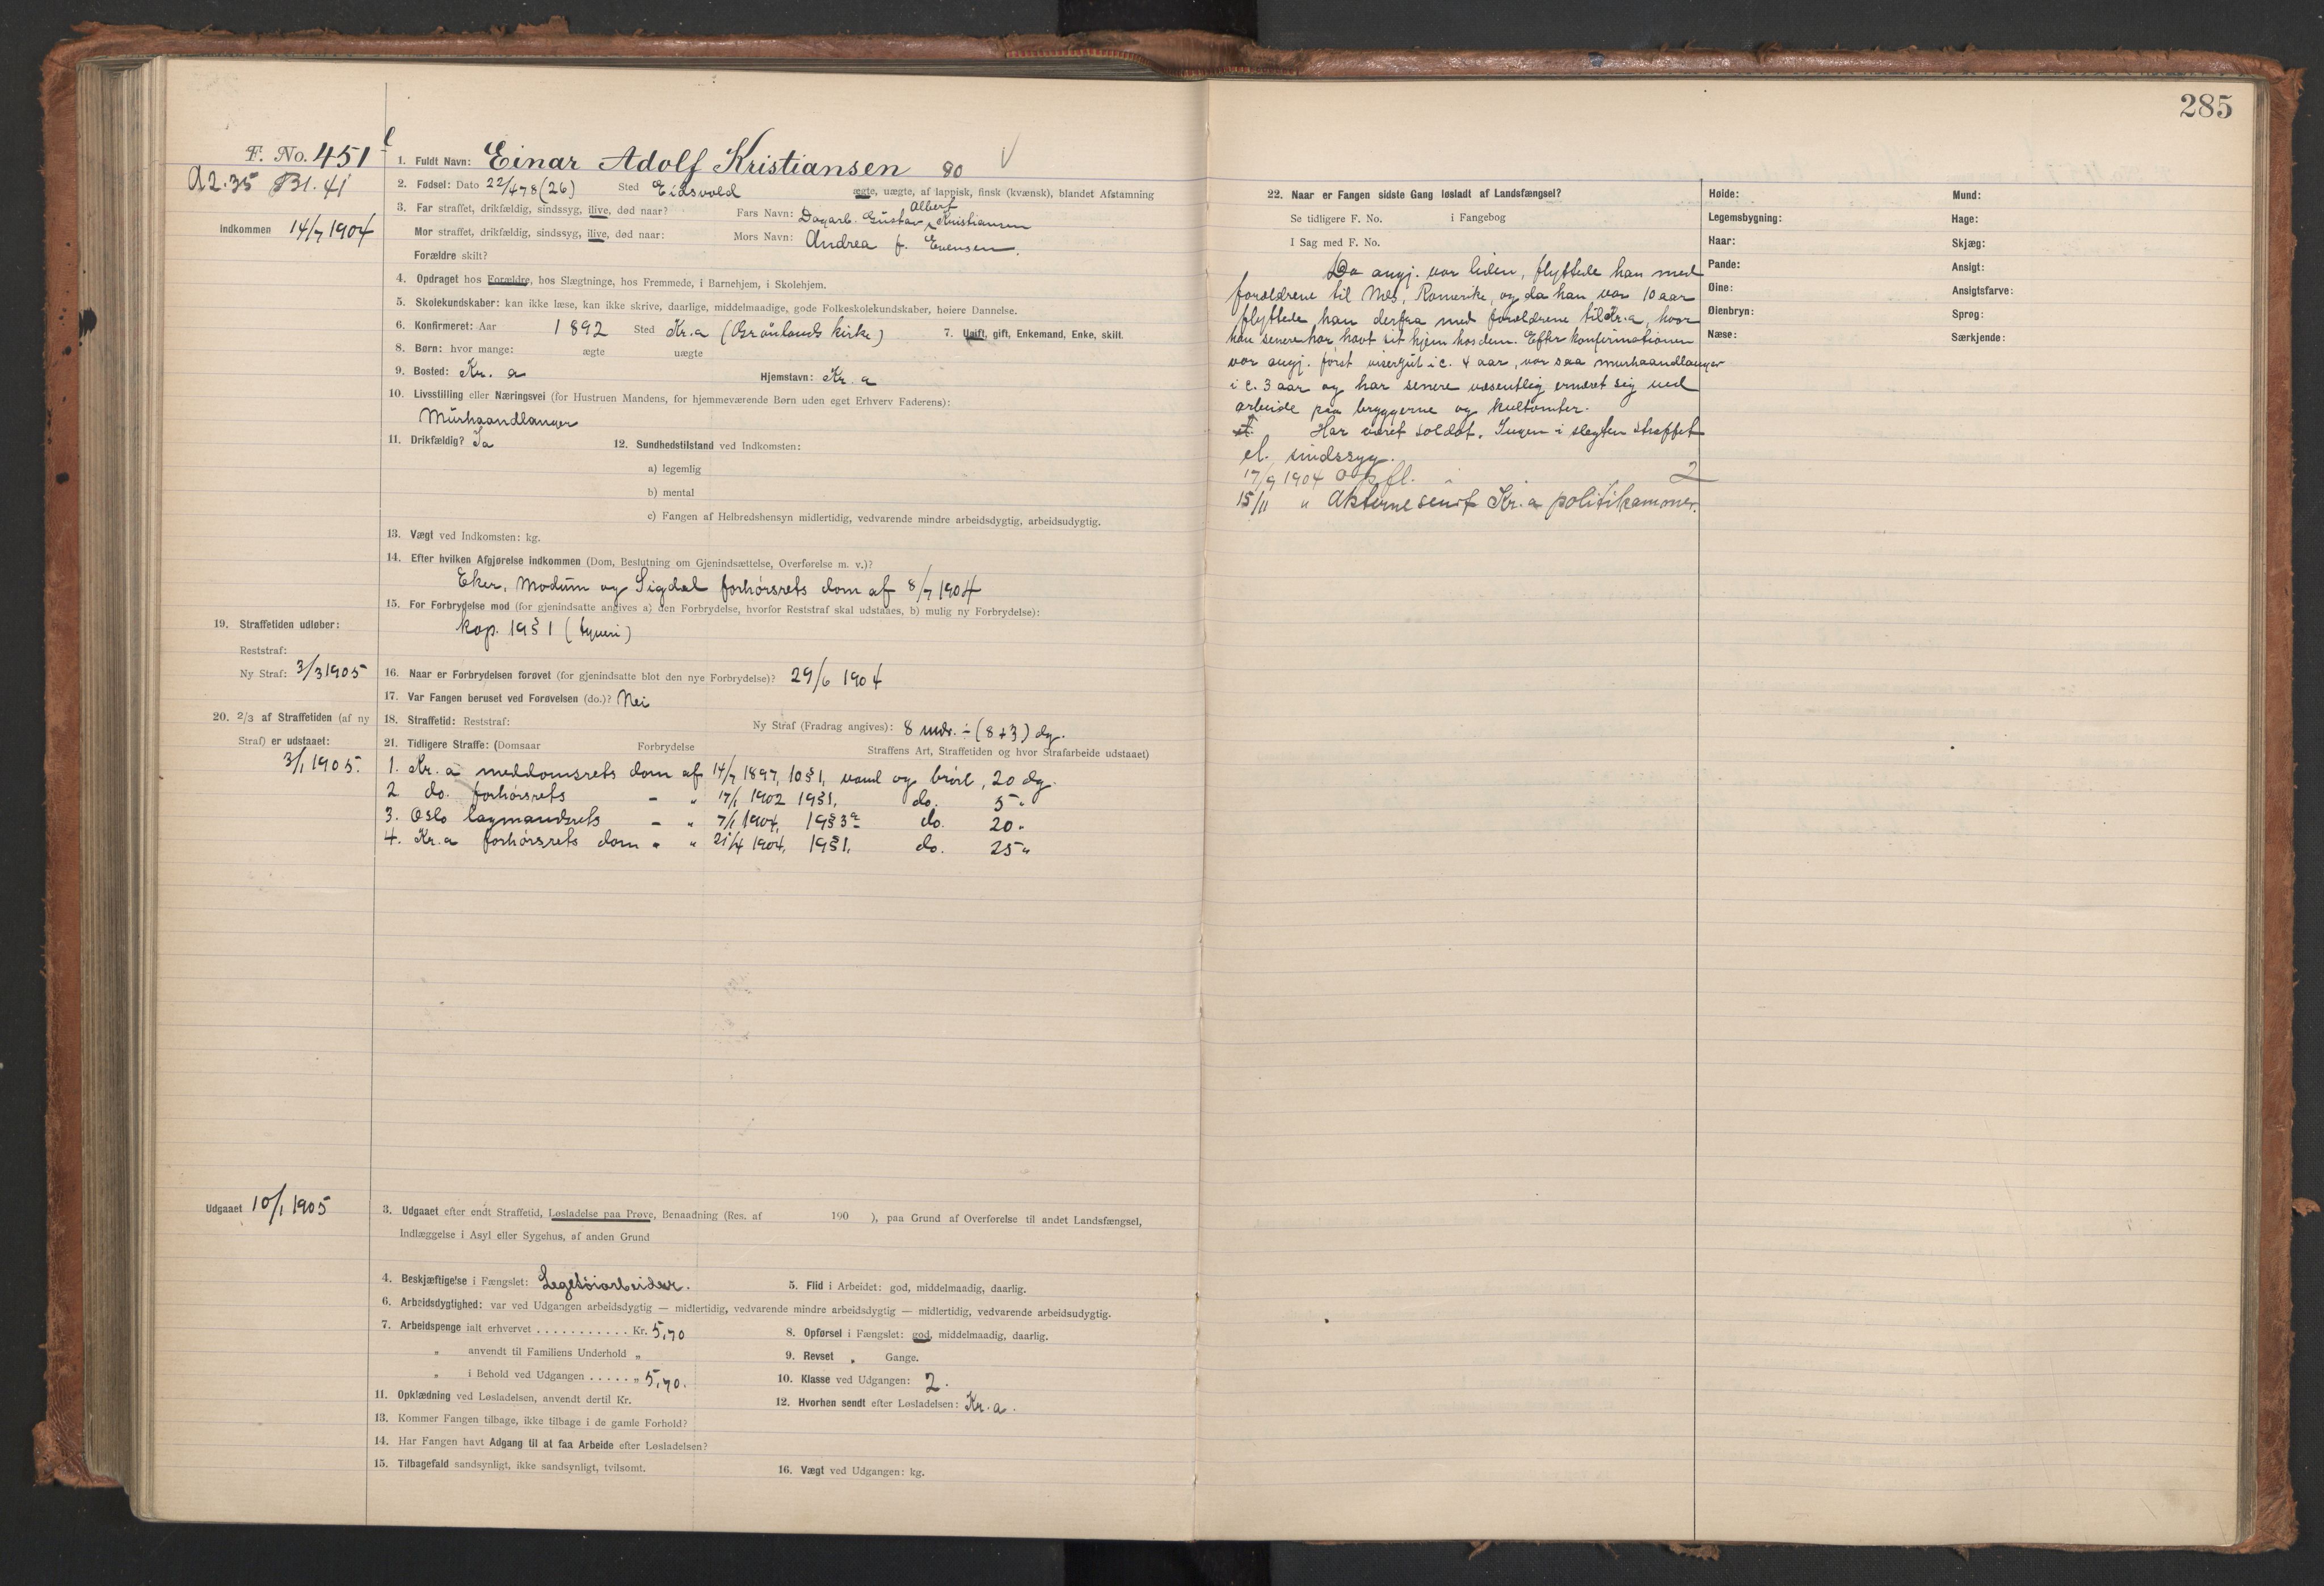 285
F. No. 451
A2.35 Bl. 41
Indkommen 14/7 1904
1. Fuldt Navn: Einar Adolf Kristiansen 80 V
2. Fødsel: Dato 22/4 78 (26) Sted Eidsvold ægte, uægte, af lappisk, finsk (kvænsk), blandet Afstamning
3. Far straffet, drikfældig, sindssyg, ilive, død naar? Fars Navn: Dagarb. Gustav Albert Kristiansen
Mor straffet, drikfældig, sindssyg, ilive, død naar: Mors Navn: Andrea f. Evensen.
Forældre skilt?
4. Opdraget hos Forældre, hos Slægtninge, hos Fremmede, i Barnehjem, i Skolehjem.
5. Skolekundskaber: kan ikke læse, kan ikke skrive, daarlige, middelmaadige, gode Folkeskolekundskaber, høiere Dannelse.
6. Konfirmeret: Aar 1892 Sted Kr.a (Grønlands kirke) 7. Ugift, gift, Enkemand, Enke, skilt.
8. Børn: hvor mange: ægte uægte
9. Bosted: Kr. a Hjemstavn: Kr. a
10. Livsstilling eller Næringsvei (for Hustruen Mandens, for hjemmeværende Børn uden eget Erhverv Faderens):
Murhaandlanger
11. Drikfældig? Ja 12. Sundhedstilstand ved Indkomsten:
a) legemlig
b) mental
c) Fangen af Helbredshensyn midlertidig, vedvarende mindre arbeidsdygtig, arbeidsudygtig.
13. Vægt ved Indkomsten: kg.
14. Efter hvilken Afgjørelse indkommen (Dom, Beslutning om Gjenindsættelse, Overførelse m. v.)?
Eker, Modum og Sigdal forhørsrets dom af 8/7 1904
15. For Forbrydelse mod (for gjenindsatte angives a) den Forbrydelse, hvorfor Reststraf skal udstaaes, b) mulig ny Forbrydelse):
kap. 19 § 1 (tyveri)
19. Straffetiden udløber:
Reststraf:
Ny Straf: 3/3 1905
16. Naar er Forbrydelsen forøvet (for gjenindsatte blot den nye Forbrydelse)? 29/6 1904
17. Var Fangen beruset ved Forøvelsen (do.)? Nei
20. 2/3 af Straffetiden (af ny
Straf) er udstaaet:
3/1 1905.
18. Straffetid: Reststraf: Ny Straf (Fradrag angives): 8 mdr. ÷ (8+3) dg.
21. Tidligere Straffe: (Domsaar Forbrydelse Straffens Art, Straffetiden og hvor Strafarbeide udstaaet)
1. Kr. a meddomsrets dom af 14/7 1897, 10 § 1, vand og brød, 20 dg.
2 do. forhørsrets - " 17/1 1902 19 § 1, do. 5 "
3. Oslo lagmandsrets - " 7/1 1904, 19 § 3 do. 20 "
4. Kr.a forhørsrets dom " " 21/4 1904, 19 § 1, do. 25 "
Udgaaet 10/1 1905
3. Udgaaet efter endt Straffetid, Løsladelse paa Prøve, Benaadning (Res. af 190 ), paa Grund af Overførelse til andet Landsfængsel,
Indlæggelse i Asyl eller Sygehus, af anden Grund
4. Beskjæftigelse i Fængslet: Legetøiarbeider. 5. Flid i Arbeidet: god, middelmaadig, daarlig.
6. Arbeidsdygtighed: var ved Udgangen arbeidsdygtig — midlertidig, vedvarende mindre arbeidsdygtig — midlertidig, vedvarende arbeidsudygtig.
7. Arbeidspenge ialt erhvervet . . . . . . . . . . . Kr. 5,70 8. Opførsel i Fængslet: god, middelmaadig, daarlig.
" anvendt til Familiens Underhold " 9. Revset " Gange.
" i Behold ved Udgangen . . . . . " 5,70. 10. Klasse ved Udgangen: 2.
11. Opklædning ved Løsladelsen, anvendt dertil Kr. 12. Hvorhen sendt efter Løsladelsen: Kr. a.
13. Kommer Fangen tilbage, ikke tilbage i de gamle Forhold?
14. Har Fangen havt Adgang til at faa Arbeide efter Løsladelsen?
15. Tilbagefald sandsynligt, ikke sandsynligt, tvilsomt. 16. Vægt ved Udgangen: kg.
22. Naar er Fangen sidste Gang løsladt af Landsfængsel?
Se tidligere F. No. i Fangebog
I Sag med F. No.
Da angj. var liden, flyttede han med
forældrene til Nes, Romerike, og da han var 10 aar
flyttede han derfra med forældrene til Kr.a, hvor
han senere har havt sit hjem hos dem. Efter konfirmationen
var angj. først visergut i c. 4 aar, var saa murhaandlanger
i c. 3 aar og har senere væsentlig ernæret sig ved
arbeide paa bryggerne og kultomter.
Har været soldat. Ingen i slegten straffet
el. sindssyg.
17/9 1904 opfl. i 2
15/11 " Akterne sendt Kr. a politikammer.
Høide: Mund:
Legemsbygning: Hage:
Haar: Skjæg:
Pande: Ansigt:
Øine: Ansigtsfarve:
Øienbryn: Sprog:
Næse: Særkjende: